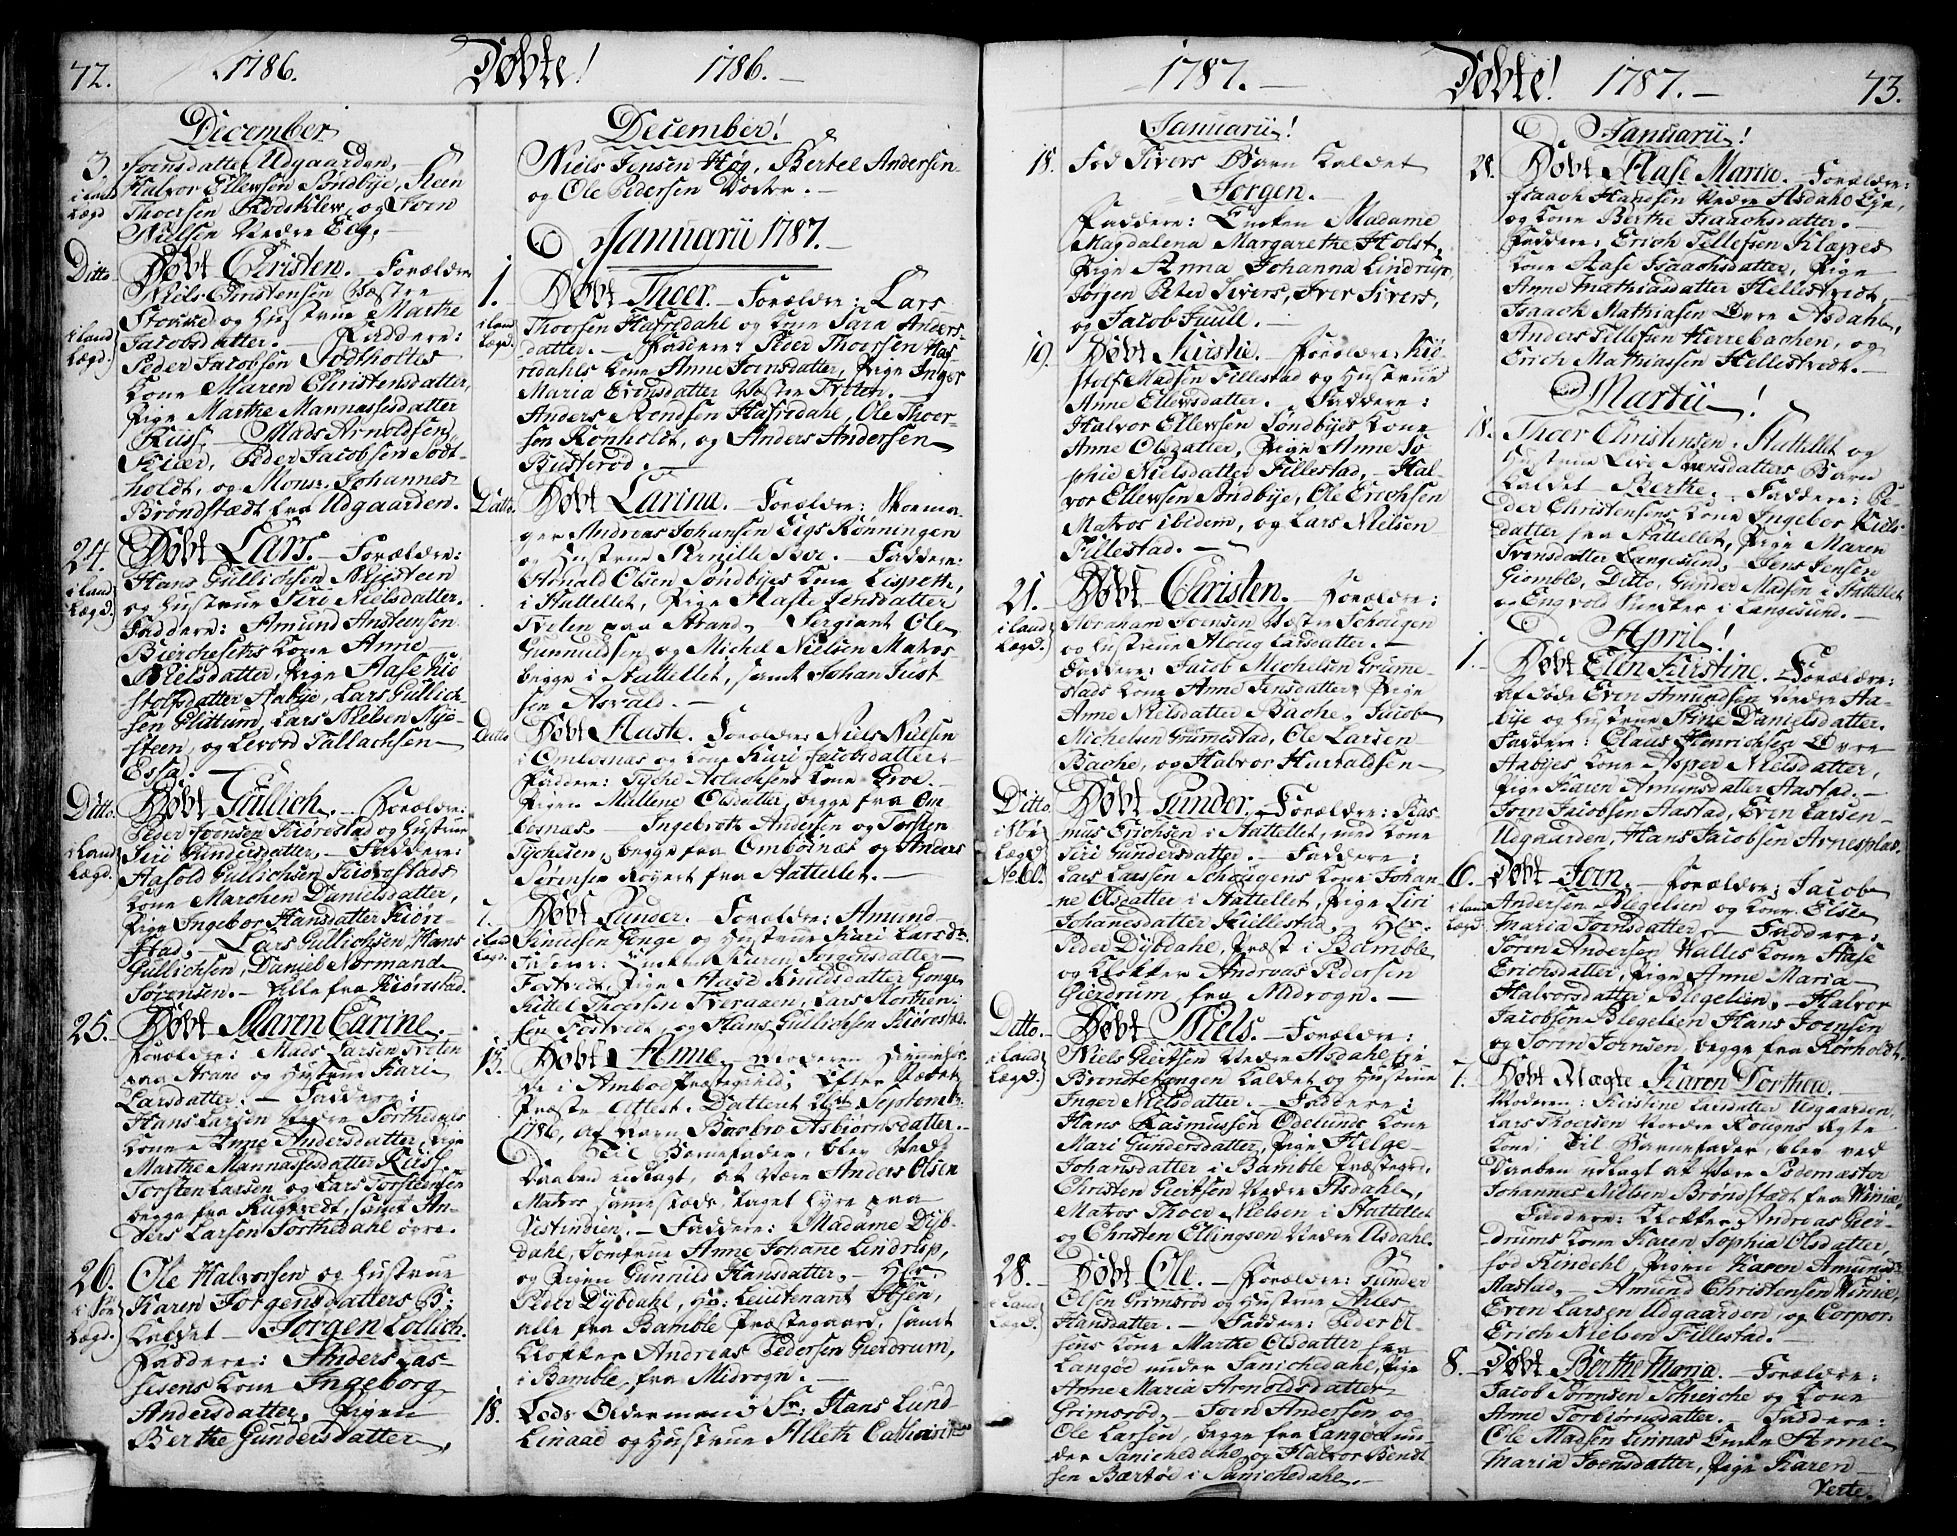 72. 1786. Døbte! 1786.
December
3. Joensdatter Udgaarden,
i Land Halvor Ellevsen Søndbye, Steen
Lægd Thoersen Rødsklev og Joen
Nielsen Nedre Eeg.
Ditto Døbt Christen. Forældre
Niels Christensen Væstre
Stokke og Hustrue Marthe
i Land Jacobsdatter. Faddere:
Lægd. Peder Jacobsen Todtholtes
Kone Maren Christensdatter,
Pige Marthe Mannassesdatter
Riis, Mads Arnoldsen
Kiær, Peder Jacobsen Todt-
holdt, og Monsr. Johannes
Brøndstædt fra Udgaarden.
24. Døbt Lars. Forældre:
i Land Hans Gullichsen
Lægd. og Hustrue Siri Nielsdatter.
Faddere: Amund Anstensen
Kone Anne
Nielsdatter, Pige Aase Kit-
stolfsdatter Aabye, Lars Gullich-
sen Flittum, Lars Nielsen
steen, og Levord Tallachsen
Essa.
Ditto. Døbt Gullich. Forældre:
Peder Joensen Kiørestad og Hustrue
i Land Siri Gundersdatter. Faddere:
Lægd. Hafold Gullichsen Kiørestads
Kone Marchen Danielsdatter,
Pige Ingebor Hansdatter Kiøre-
stad, Lars Gullichsen, Hans
Gullichsen, Daniel Normand
Sørensen. Alle fra Kiørestad.
25. Døbt Maren Carine.
Forældre: Mads Larsen Tveten
paa Strand og Hustrue Kari
Larsdatter: Faddere:
Hans Larsen Nedre Torthedals
Kone Anne Andersdatter, Pige
Marthe Mannassesdatter Riis,
Torsten Larsen og Lars Torstensen
begge fra Rugtvedt, samt An-
ders Larsen Torthedahl øvre.
26. Ole Halvorsen og Hustrue
i Søe Karen Jørgensdatters B:
Lægd. kaldet Jørgen Lollich.
Faddere: Anders Las-
sesens Kone Ingeborg
Andersdatter, Pigen
Berthe Gundersdatter,
December!
Niels Jensen Høg, Bertel Andersen
og Ole Pedersen Valse.
Januarii 1787.
1. Døbt Thoer. Forældre: Lars
i Land Thoersen Hafredahl og Kone Sara Anders-
Lægd. datter. Faddere: Peder Thoersen Haf-
redahls Kone Anne Joensdatter, Pige Inger
Maria Evensdatter Væstre Tveten.
Anders Svendsen Hafredahl, Ole Thoer-
sen Ronholdt, og Anders Andersen
Busserød.
Ditto. Døbt Carina. Forældre: Skoema-
ger Andreas Johansen Eegs Rønningen
og Hustrue Pernille Roe. Faddere:
Arnald Olsen Søndbyes Kone Lisbeth,
i Stattellet, Pige Aaste Jensdatter
Tveten paa Strand, Sergiant Ole
Gunnuldsen, og Michel Nielsen Matros
begge i Stattellet, samt Johan Just-
sen Asvald.
Ditto Døbt Aaste. Forældre: Niels Nielsen
i Ombornæs og Kone Kari Jacobsdatter.
Faddere: Tyche Aslachsens Kone Groe
Pigen Malene Olsdatter, begge fra Om-
bornæs. Ingebreth Andersen og Torsten
Tychesen, begge fra Ombornæs og Anders
Sørensen Rogert fra Stattellet.
7. Døbt Gunder. Forældre: Amund
i Land Knudsen Gonge og Hustrue Kari Larsdtr.
Lægd. Faddere: Enke Karen Jørgensdatter
Fostvedt, Pige Aase Knudsdatter Gonge
Kittel Thoersen Tveraaen, Lars Morthen-
sen Fostvedt og Hans Gullichsen Kiørestad.
13. Døbt Anne. Moderen hiemmehør-
de i Ambod Præstegield; Efter Stædets
Præste-Attest. Datteret Septembr.
1786, af Navn Barbro Asbiørnsdatter.
Til Barnefader, blev ved
Daaben udlagt, at være Anders Olsen
Matros sammesteds, taget Hyre paa
Vestindien. Faddere: Madame Dyb-
dahl, Jomfrue Anne Johane Lindrup,
og Pigen Gunnild Hansdatter. Hr.
Peder Dybdahl, Hr: Lieutenant Olsen,
alle fra Bamble Præstegaard, samt
Klokker Andreas Pedersen Gierdrum,
i Bamble, fra Midrogn.
18. Lods Oldermand Sr: Hans Lund
Linaae og Hustrue Alleth Cathrine
1787. Døbte! 1787. 73.
Januarii!
18. Fød Sivers Barn kaldet
Jørgen.
Faddere: Enken Madame
Magdalena Margarethe Holst,
Pige Anna Johanna Lindrup,
Jørgen Peter Sivers, Iver Sivers,
og Jacob Juull.
19. Døbt Kirstie. Forældre: Kid-
stolf Madsen Fillestad og Hustrue
Anne Ellevsdatter. Faddere:
Halvor Ellevsen Søndbyes Kone
Anne Olsdatter, Pige Anne So-
phie Nielsdatter Fillestad, Hal-
vor Ellevsen Søndbye, Ole Erichsen
Matros ibidem, og Lars Nielsen
Fillestad.
21. Døbt Christen. Forældre:
i Land Abraham Joensen Væstre Schougen
Lægd. og Hustrue Aloug Larsdatter.
Faddere: Jacob Michelsen Grumme-
stads Kone Anne Jensdatter, Pige
Anne Nielsdatter Bache, Jacob
Michelsen Grumestad, Ole Larsen
Bache, og Halvor Harvaldsen
Ditto Døbt Gunder. Forældre: Ras-
i Søe mus Erichsen i Stattellet, med Kone
Lægd Siri Gundersdatter. Faddere:
No. 60. Lars Larsen Schougens Kone Johan-
ne Olsdatter i Stattellet, Pige Siri
Johanesdatter Killestad, Hr.
Peder Dybdahl, Præst i Bamble
og Klokker Andreas Pedersen
Gierdrum fra Midrogn.
Ditto. Døbt Niels. Forældre:
i Land Niels Giertsen Nedre Asdahl Eje
Lægd. Brondtehangen kaldet og Hustrue
Inger Nielsdatter. Faddere:
Hans Rasmussen Ødelunds Kone
Mari Gundersdatter, Pige Helge
Johansdatter i Bamble Præstegrd,
Christen Giertsen Nedre Asdahl,
Matros Thoer Nielsen i Stattellet
og Christen Ellingsen Nedre Asdahl.
28. Døbt Ole. Forældre: Gunder
i Land Olsen Grimsrød og Hustrue Arles
Lægd. Hansdatter. Faddere: Peder Ol-
sens Kone Marthe Olsdatter fra
Langøe under Tanichedahl, Pige
Anne Maria Arnoldsdatter
Grimsrød, Joen Andersen og
Ole Larsen, begge fra Langøe un-
der Tanichedahl, og Halvor Bendt-
sen Bærtøe i Tanichedahl.
Januarii!
28. Døbt Aase Maria. Forældre:
Isaach Hansen Nedre Asdahl Eje,
og Kone Berthe Isaachsdatter.
Faddere: Erich Tellefsen Klappes
Kone Aase Isaachsdatter, Pige
Anne Mathiasdatter Hellestvedt,
Isaach Mathiasen Øvre Asdahl,
Anders Tellefsen Herrebachen, og
Erich Mathiassen Hellestvedt.
Martii!
18. Thoer Christensen i Stattellet og
Hustrue Live Svensdatters Barn
kaldet Berthe. Faddere: Pe-
der Christensens Kone Ingebor Niels-
datter fra Stattellet, Pige Maren
Svensdatter Langesund, Jens Jensen
Giemble, Ditto Gunder Madsen i Stattellet
og Engvold i Langesund.
April!
1. Døbt Elen Kirstine. Forældre:
Af Døde Even Amundsen Nedre Aa-
bye og Hustrue Stine Danielsdatter.
Faddere: Claus Henrichsen Øvre
Aabyes Kone Asper Nielsdatter,
Pige Karen Amunsdatter Aastad.
Joen Jacobsen Aastad, Even Larsen
Udgaarden, Hans Jacobsen Arnesplas.
6. Døbt Joen. Forældre: Jacob
i Land Andersen Blegelien og Kone Else
Lægd. Maria Joensdatter. Faddere:
Søren Andersen Valles Kone Aase
Erichsdatter, Pige Anne Maria
Halvorsdatter Blegelien, Halvor
Jacobsen Blegelien, Hans Joensen
og Søren Joensen, begge fra Rørholdt.
7. Døbt Uægte Karen Dorthea.
Moderen: Kirstine Larsdatter Udgaarden,
Lars Thoersen Nordre Rougns Ægte
Kone, Til Barnefader, blev ved
Daaben udlagt at være Pedemæster
Johannes Nielsen Brøndstædt fra
Faddere: Klokker Andreas Gier-
drums Kone Karen Sophia Olsdatter,
fød Rindehl, Pigen Karen Amundsdtr
Aastad, Amund Christensen
Even Larsen Udgaarden, og Corpor:
Erich Nielsen Fillestad.
8. Døbt Berthe Maria. Forældre:
Jacob Sørensen Schieiche og Kone
Anne Torbiørnsdatter. Faddere:
Ole Madsen Linnas Enke Anne
Maria Joensdatter, Pige Karen
Verte.